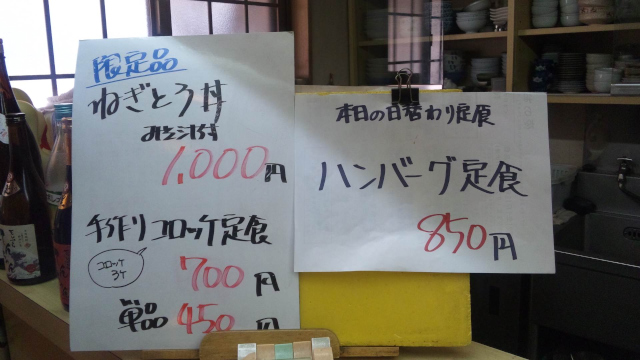 限定品
ねぎとろ丼
みそ汁付
1,000円
手作りコロッケ定食
コロッケ
3ケ
700円
単品 450円
本日の日替わり定食
ハンバーグ定食
850円